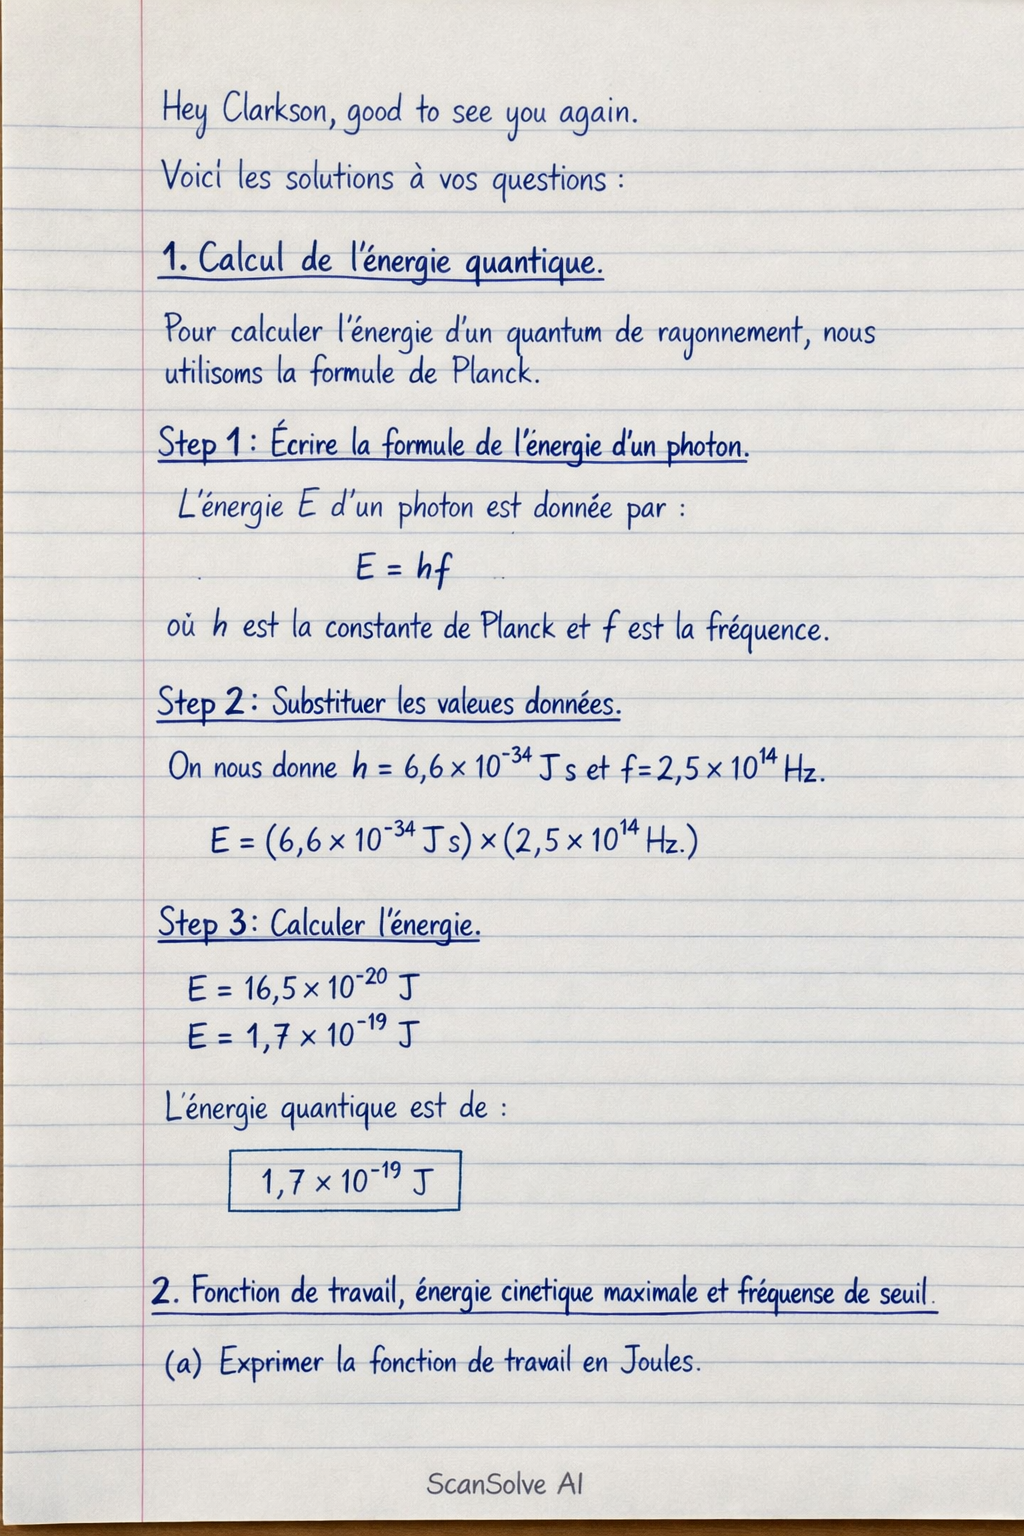 Hey Clarkson, good to see you again.
Voici les solutions à vos questions :
1. Calcul de l'énergie quantique.
Pour calculer l'énergie d'un quantum de rayonnement, nous
utilisoms la formule de Planck.
Step 1 : Écrire la formule de l'énergie d'un photon.
L'énergie E d'un photon est donnée par :
E = hf
où h est la constante de Planck et f est la fréquence.
Step 2 : Substituer les valeues données.
On nous donne h = 6,6 × 10⁻³⁴ J s et f = 2,5 × 10¹⁴ Hz.
E = (6,6 × 10⁻³⁴ J s) × (2,5 × 10¹⁴ Hz.)
Step 3 : Calculer l'énergie.
E = 16,5 × 10⁻²⁰ J
E = 1,7 × 10⁻¹⁹ J
L'énergie quantique est de :
1,7 × 10⁻¹⁹ J
2. Fonction de travail, énergie cinetique maximale et fréquense de seuil.
(a) Exprimer la fonction de travail en Joules.
ScanSolve AI